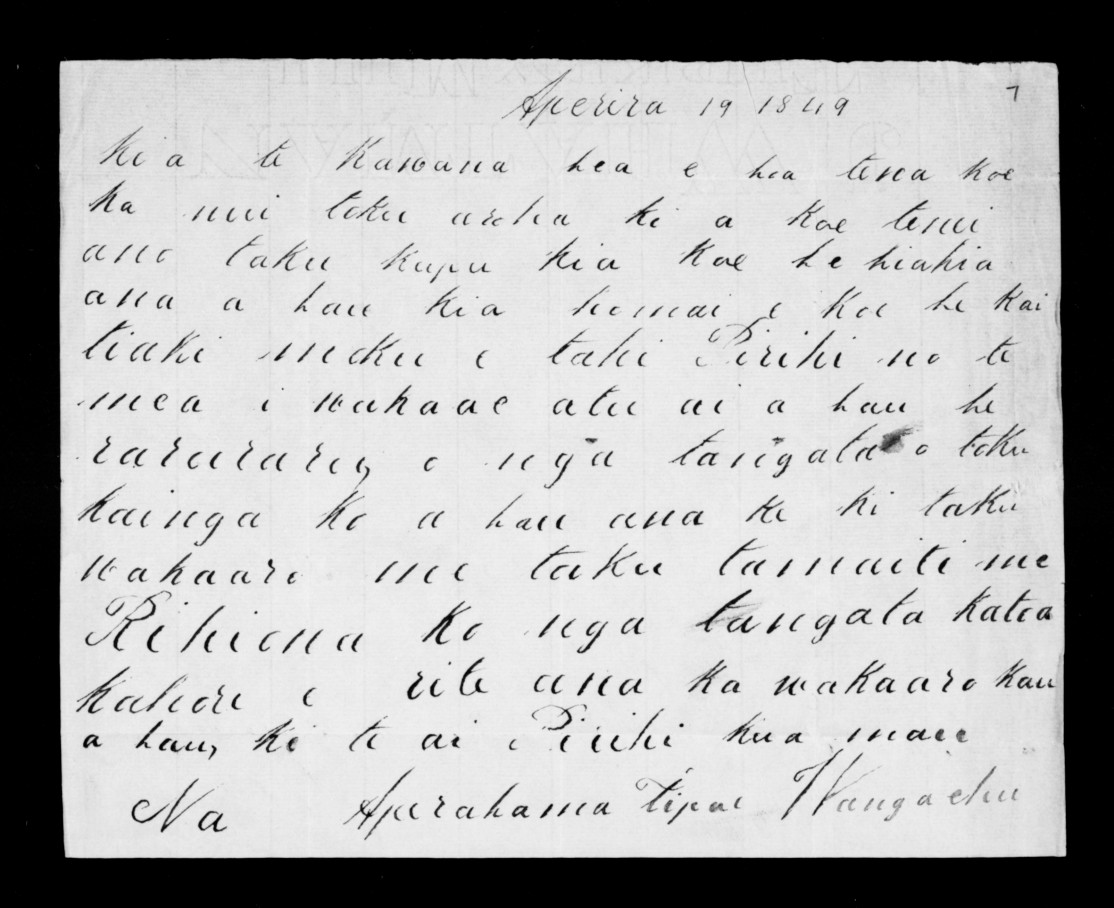 7
Aperira 19 1849
Ki a te Kawana hea e hoa tena koe
ka nui toku aroha ki a koe tenei
ano taku kupu kia koe he hiahia
ana a hau kia homai e koe he kai
tiaki moku e tahi Pirihi no te
mea i wakaae atu ai a hau he
raruraru o nga tangata o toku
kainga ko a hau ana ke ki taku
wakaaro me taku tamaiti me
Rihiona ko nga tangata katoa
kahore e rite ana ka wakaaro kau
a hau, ki te ai Pirihi kua mau
Na Aperahama Tipae Wangaehu